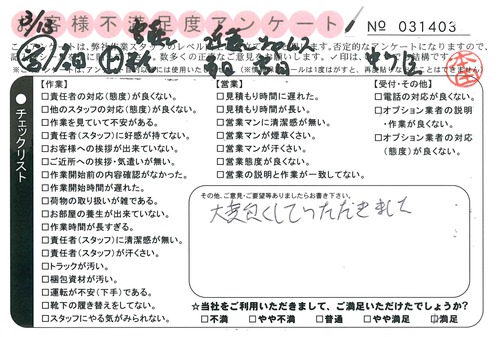 お客様不満足度アンケート
No 031403
チェックリスト
【作業】
□責任者の対応(態度)が良くない。
□他のスタッフの対応(態度)が良くない。
□作業を見ていて不安がある。
□責任者(スタッフ)に好感が持てない。
□お客様への挨拶が出来ていない。
□ご近所への挨拶・気遣いが無い。
□作業開始前の内容確認がなかった。
□作業開始時間が遅れた。
□荷物の取り扱いが雑である。
□お部屋の養生が出来ていない。
□作業時間が長すぎる。
□責任者(スタッフ)に清潔感が無い。
□責任者(スタッフ)が汗くさい。
□トラックが汚い。
□梱包資材が汚い。
□運転が不安(下手)である。
□靴下の履き替えをしてない。
□スタッフにやる気がみられない。
【営業】
□見積もり時間に遅れた。
□見積もり時間が長い。
□営業マンに清潔感が無い。
□営業マンが煙草くさい。
□営業マンが汗くさい。
□営業態度が良くない。
□営業の説明と作業が一致してない。
【受付・その他】
□電話の対応が良くない。
□オプション業者の説明
・作業が良くない。
□オプション業者の対応
(態度)が良くない。
その他、ご意見・ご要望等ありましたらお書き下さい。
大変良くしていただきました
☆当社をご利用いただきまして、ご満足いただけたでしょうか?
□不満 □やや不満 □普通 □やや満足 □満足